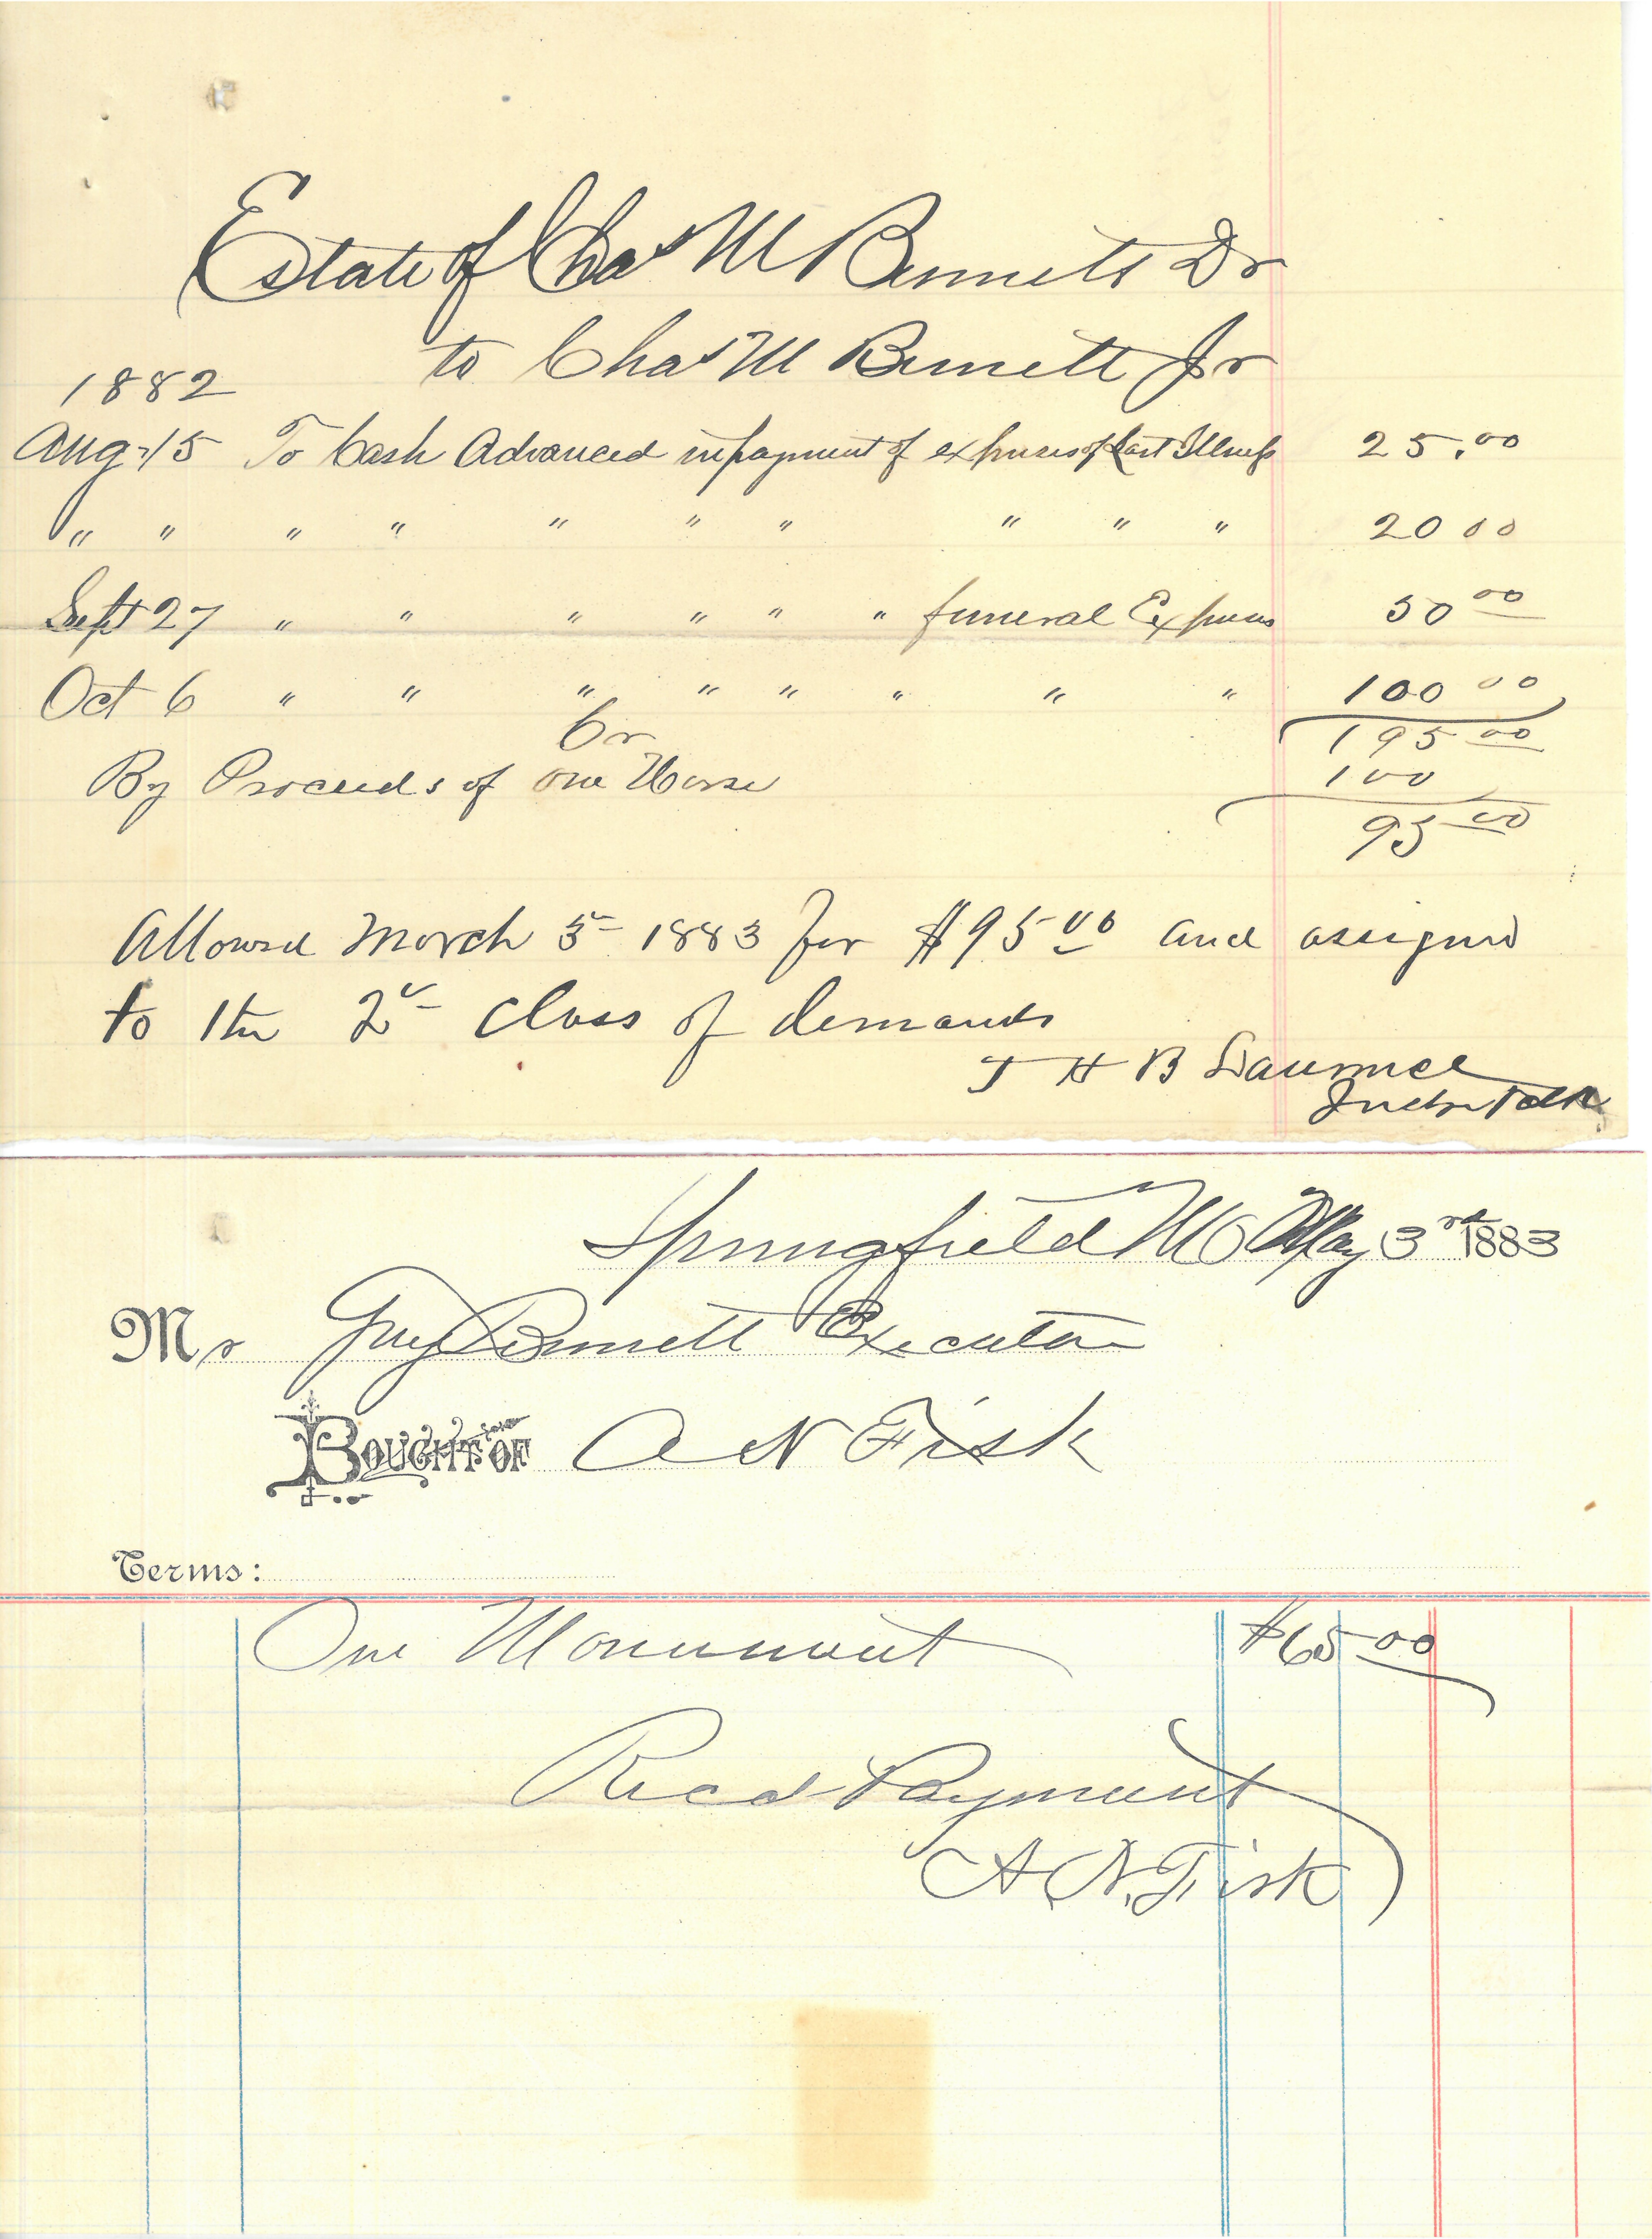 Estate of Chas M Bennett Dr
to Chas M Bennett Jr
1882
Aug 15 To Cash Advanced in payment of expenses of Last Illness 25.00
" " " " " " " " " " 20 00
Sept 27 " " " " " " funeral Expenses 50 00
Oct 6 " " " " " " " " 100 00
195 00
Cr
By Proceeds of one Horse 100
95 00
Allowed March 5 1883 for $95 00 and assigned
to the 2d class of demands
J H B
Springfield MO May 3rd 1883
Mr Guy Bennett Executor
BOUGHT OF A N Fisk
Terms:
One Monument $65 00
Recd Payment
A. N. Fisk